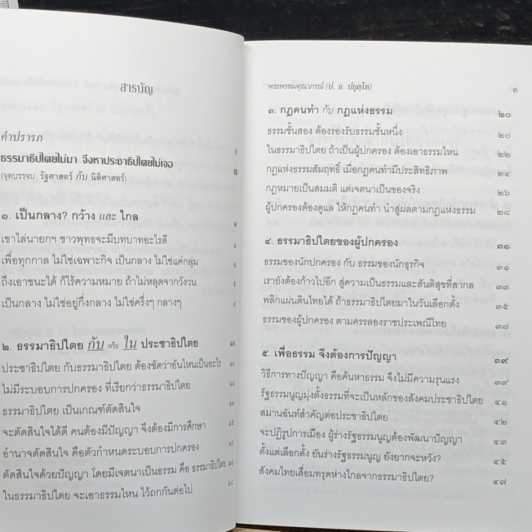 สารบัญ
คำปรารภ
ธรรมาธิปไตยไม่มา จึงหาประชาธิปไตยไม่เจอ ๑
(จุดบรรจบ: รัฐศาสตร์ กับ นิติศาสตร์)
๑. เป็นกลาง? กว้าง และ ไกล
เขาไล่นายกฯ ชาวพุทธจะมีบทบาทอะไรดี
เพื่อทุกกาล ไม่ใช่เฉพาะกิจ เป็นกลาง ไม่ใช่แค่กลุ่ม
ถึงเอาชนะได้ ก็ไร้ความหมาย ถ้าไม่หลุดจากวังวน
เป็นกลาง ไม่ใช่อยู่กึ่งกลาง ไม่ใช่ครึ่งๆ กลางๆ
๒. ธรรมาธิปไตย กับ หรือ ใน ประชาธิปไตย
ประชาธิปไตย กับธรรมาธิปไตย ต้องชัดว่าอันไหนเป็นอะไร
ไม่มีระบอบการปกครอง ที่เรียกว่าธรรมาธิปไตย
ธรรมาธิปไตย เป็นเกณฑ์ตัดสินใจ
จะตัดสินใจได้ดี คนต้องมีปัญญา จึงต้องมีการศึกษา
อำนาจตัดสินใจ คือตัวกำหนดระบอบการปกครอง
ตัดสินใจด้วยปัญญา โดยมีเจตนาเป็นธรรม คือ ธรรมาธิปไตย
ในธรรมาธิปไตย จะเอาธรรมไหน ไว้ถกกันต่อไป
พระพรหมคุณาภรณ์ (ป. อ. ปยุตฺโต)
๓. กฎคนทำ กับ กฎแห่งธรรม ๒๐
ธรรมชั้นสอง ต้องรองรับธรรมชั้นหนึ่ง ๒๐
ในธรรมาธิปไตย ถ้าเป็นผู้ปกครอง ต้องเอาธรรมไหน ๒๒
กฎแห่งธรรมสัมฤทธิ์ เมื่อกฎคนทำมีประสิทธิภาพ ๒๔
กฎหมายเป็นสมมติ แต่เจตนาเป็นของจริง ๒๖
ผู้ปกครองต้องดูแล ให้กฎคนทำ นำสู่ผลตามกฎแห่งธรรม ๒๘
๔. ธรรมาธิปไตยของผู้ปกครอง ๓๑
ธรรมของนักปกครอง กับ ธรรมของนักธุรกิจ ๓๑
เรายังต้องก้าวไปอีก สู่ความเป็นธรรมและสันติสุขที่สากล ๓๓
พลิกแผ่นดินไทยได้ ถ้าธรรมาธิปไตยมาในวันเลือกตั้ง ๓๕
ธรรมของผู้ปกครอง ตามครรลองราชประเพณีไทย ๓๗
๕. เพื่อธรรม จึงต้องการปัญญา ๓๙
วิธีการทางปัญญา คือค้นหาธรรม จึงไม่มีความรุนแรง ๓๙
รัฐธรรมนูญมุ่งตั้งธรรมที่จะเป็นหลักของสังคมประชาธิปไตย ๔๑
สมานฉันท์สำคัญต่อประชาธิปไตย ๔๒
จะปฏิรูปการเมือง ผู้ร่างรัฐธรรมนูญต้องพัฒนาปัญญา
ตั้งแต่เลือกตั้ง ยันร่างรัฐธรรมนูญ ยังยากจะหวัง? ๔๕
สังคมไทยเสื่อมทรุดห่างไกลจากธรรมาธิปไตย? ๔๗